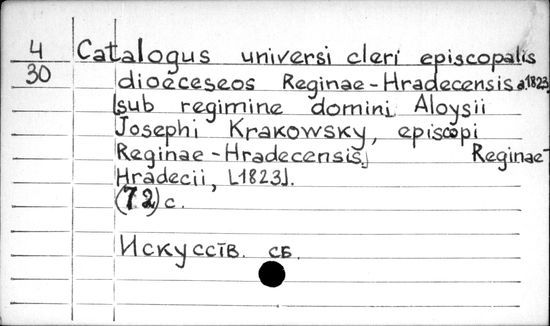 4 Catalogus universi cleri episcopalis
30 dioeceseos Reginae-Hradecensis a.1823,
[sub regimine domini Aloysii
Josephi Krakowsky, episcopi
Reginae-Hradecensis] Reginae-
Hradecii, [1823].
(72) с.
Искусств. сб.